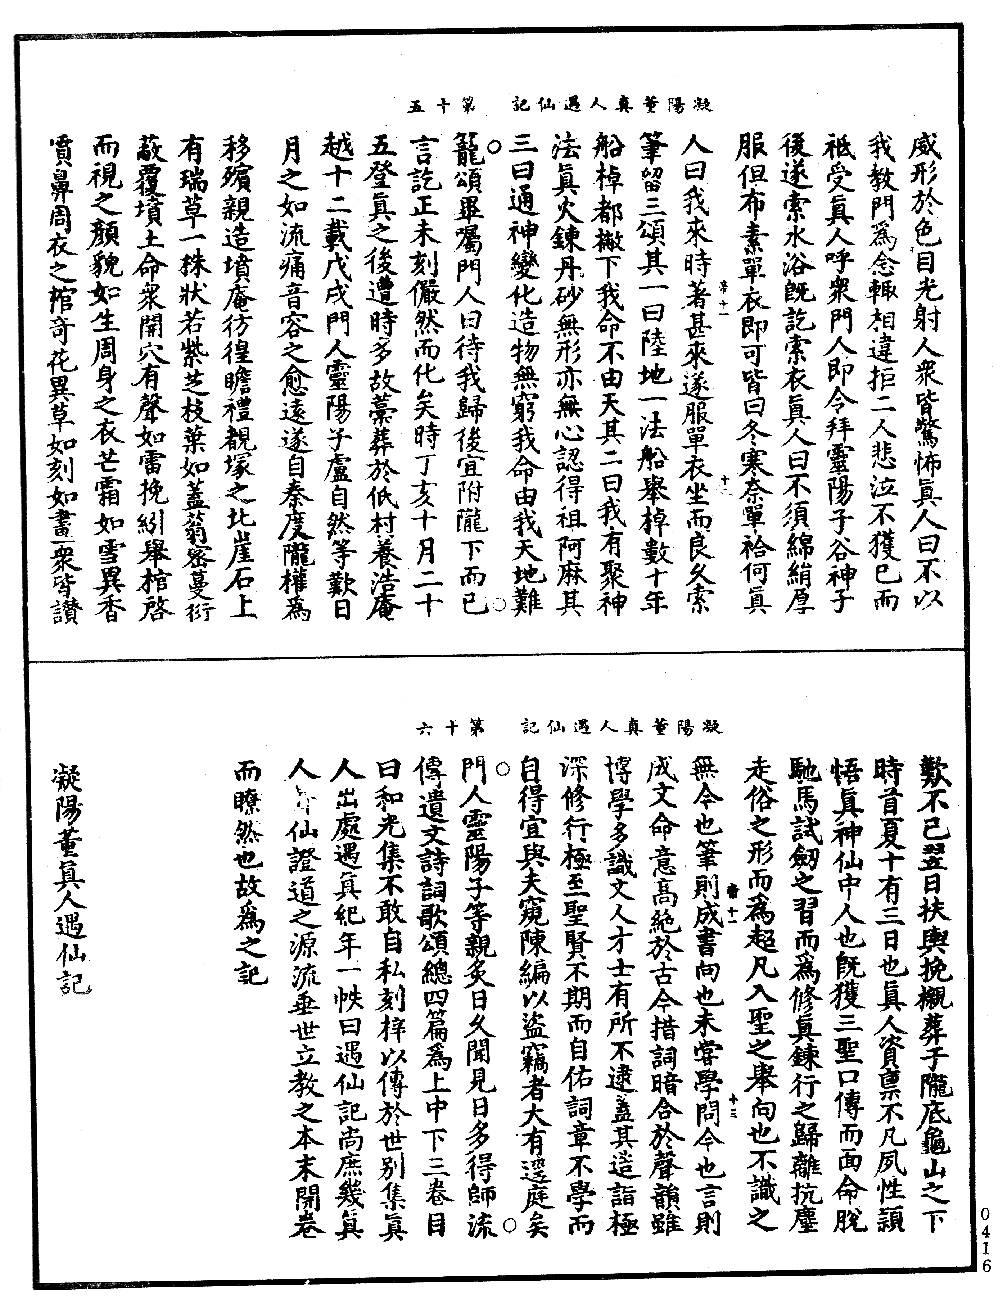 凝陽董真人遇仙記　第十五
威形於色目光射人衆皆驚怖真人曰不以
我教門為念輒相違拒二人悲泣不獲已而
祗受真人呼衆門人即令拜靈陽子谷神子
後遂索水浴既訖索衣真人曰不須綿絹厚
服但布素單衣即可皆曰冬寒奈單袷何真
人曰我來時著甚來遂服單衣坐而良久索
筆留三頌其一曰陸地一法船舉棹數十年
船棹都撇下我命不由天其二曰我有聚神
法真火鍊丹砂無形亦無心認得祖阿麻其
三曰通神變化造物無窮我命由我天地難
籠頌畢囑門人曰待我歸後宜附隴下而已
言訖正未刻儼然而化矣時丁亥十月二十
五登真之後遭時多故藁葬於低村養浩庵
越十二載戊戌門人靈陽子盧自然等歎日
月之如流痛音容之愈遠遂自秦度隴權為
移殯親造墳庵彷徨瞻禮覩塚之北崖石上
有瑞草一株狀若紫芝枝葉如蓋蓊密蔓衍
蔽覆墳土命衆開穴有聲如雷挽紖舉棺啓
而視之顏貌如生周身之衣芒霜如雪異香
噴鼻周衣之棺奇花異草如刻如畫衆皆讚
凝陽董真人遇仙記　第十六
歎不已翌日扶輿挽櫬葬于隴底龜山之下
時首夏十有三日也真人資稟不凡夙性穎
悟真神仙中人也既獲三聖口傳而面命脫
馳馬試劒之習而為修真鍊行之歸離抗塵
走俗之形而為超凡入聖之舉向也不識之
無今也筆則成書向也未嘗學問今也言則
成文命意高絕於古今措詞暗合於聲韻雖
博學多識文人才士有所不逮蓋其造詣極
深修行極至聖賢不期而自佑詞章不學而
自得宜與夫窺陳編以盜竊者大有逕庭矣
門人靈陽子等親炙日久聞見日多得師流
傳遺文詩詞歌頌總四篇為上中下三卷目
曰和光集不敢自私刻梓以傳於世別集真
人出處遇真紀年一帙曰遇仙記尚庶幾真
人仙證道之源流垂世立教之本末開卷
而瞭然也故為之記
凝陽董真人遇仙記
0416